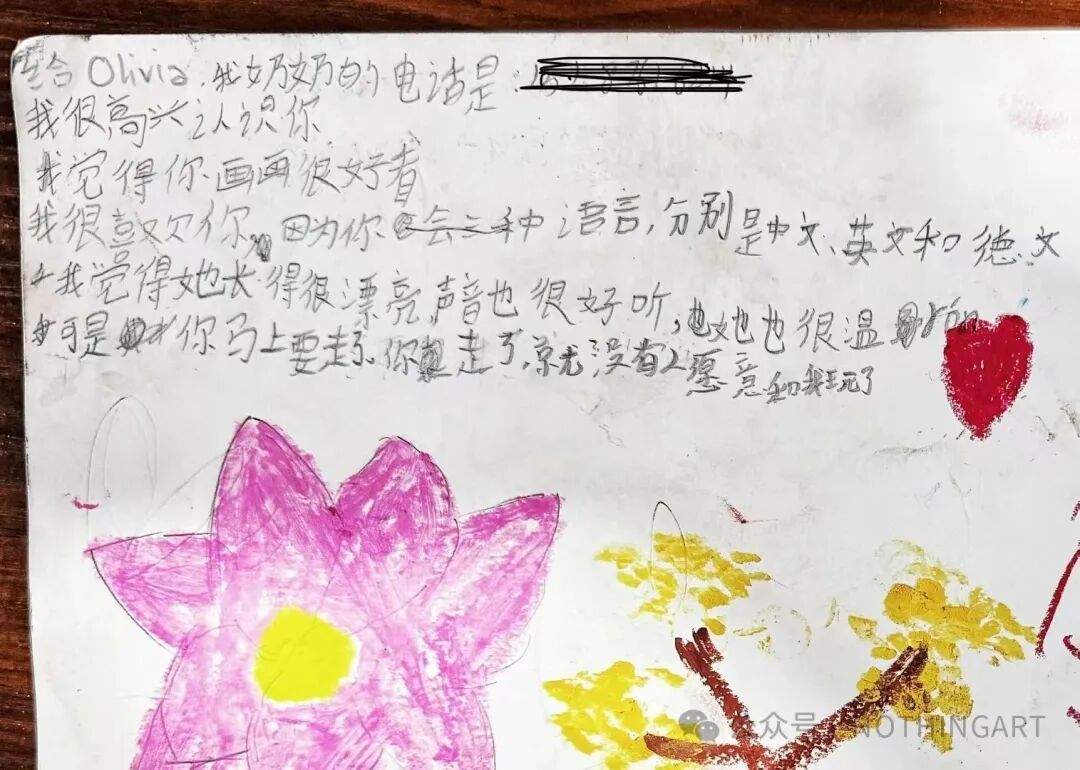 给 Olivia，我奶奶的电话是：
我很高兴认识你
我觉得你画画很好看
我很喜欢你，因为你会三种语言，分别是中文、英文和德文
我觉得她长得很漂亮，声音也很好听，她也很温rón
可是你马上要走了，你走了，就没有人愿意和我玩了
公众号 NOTHINGART